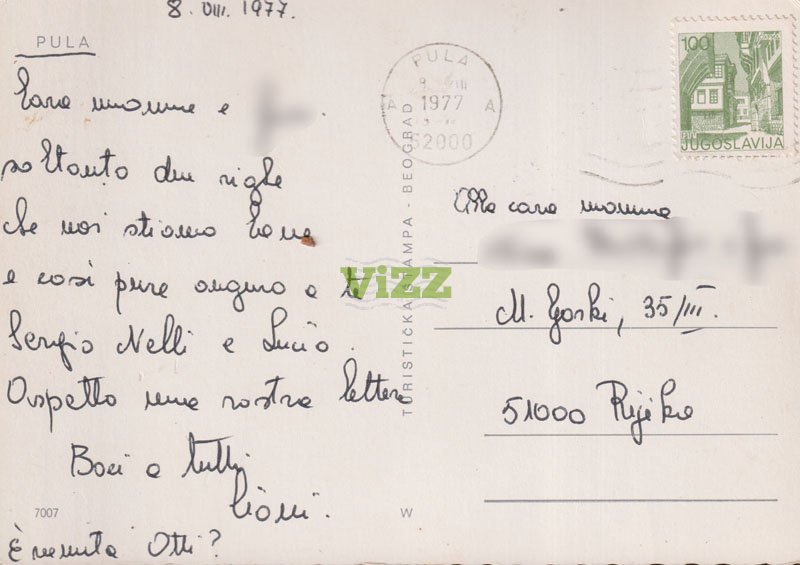 8. VIII. 1977.
PULA
Cara mamma e
soltanto due righe
che noi stiamo bene
e così pure auguro a te
Sergio Nelli e Lucio.
Aspetto una vostra lettera
Baci a tutti
7007
È venuta Otti?
TURISTIČKA ŠTAMPA - BEOGRAD
W
PULA
1977
A A
52000
100
JUGOSLAVIJA
Alla cara mamma
M. Gorki, 35/III.
51000 Rijeka
ViZZ